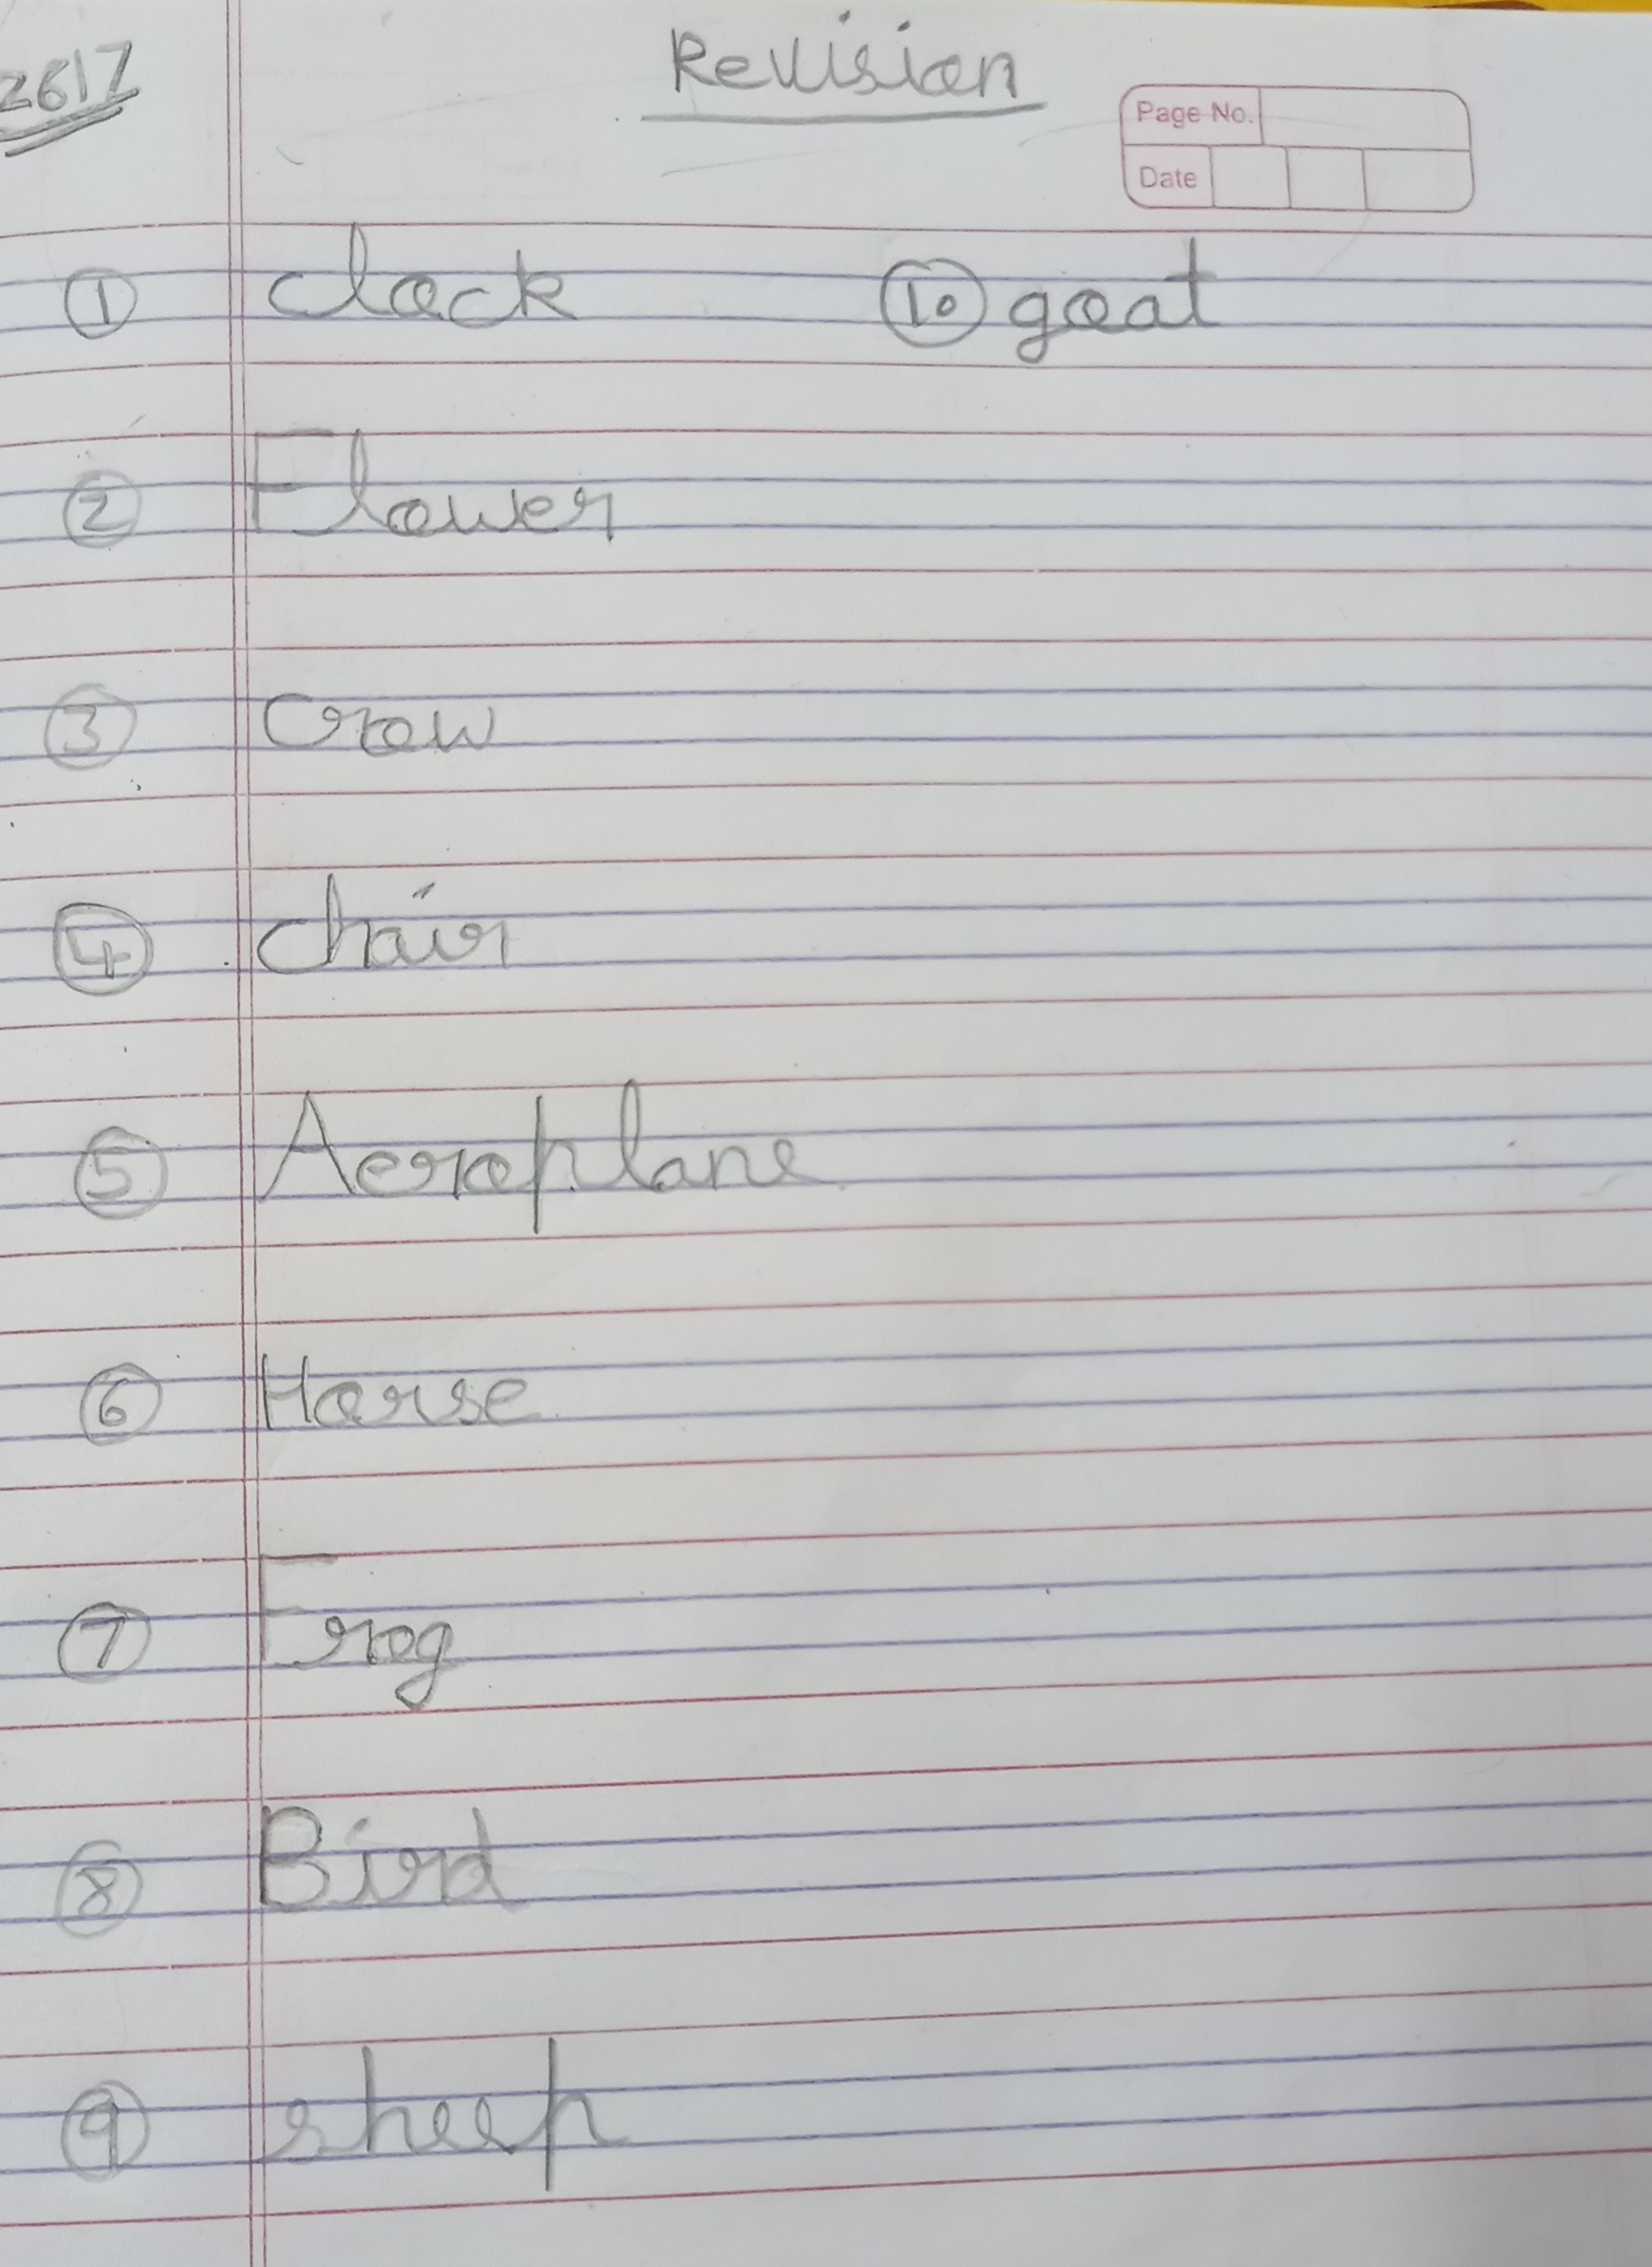 Revision
2617
Page No.
Date
① clock ⑩ goat
② Flower
③ Crow
④ chair
⑤ Aeroplane
⑥ Horse
⑦ Frog
⑧ Bird
⑨ sheep